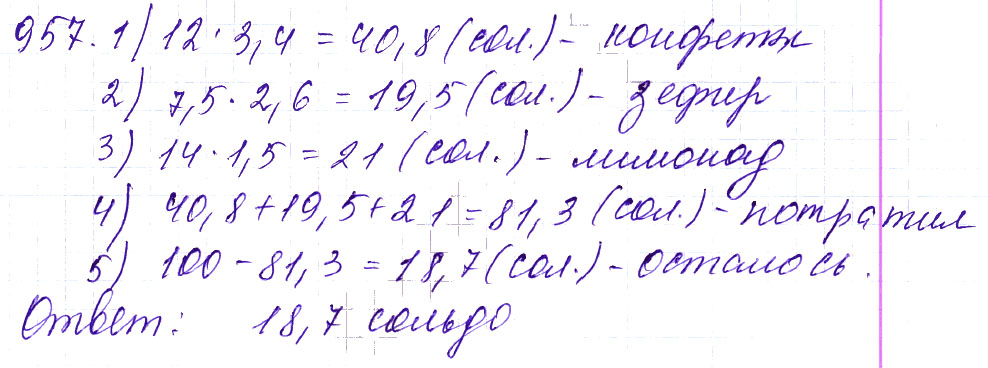 957. 1) 12 · 3,4 = 40,8 (сол.) - конфеты
2) 7,5 · 2,6 = 19,5 (сол.) - зефир
3) 14 · 1,5 = 21 (сол.) - лимонад
4) 40,8 + 19,5 + 21 = 81,3 (сол.) - потратил
5) 100 - 81,3 = 18,7 (сол.) - осталось.
Ответ: 18,7 сольдо